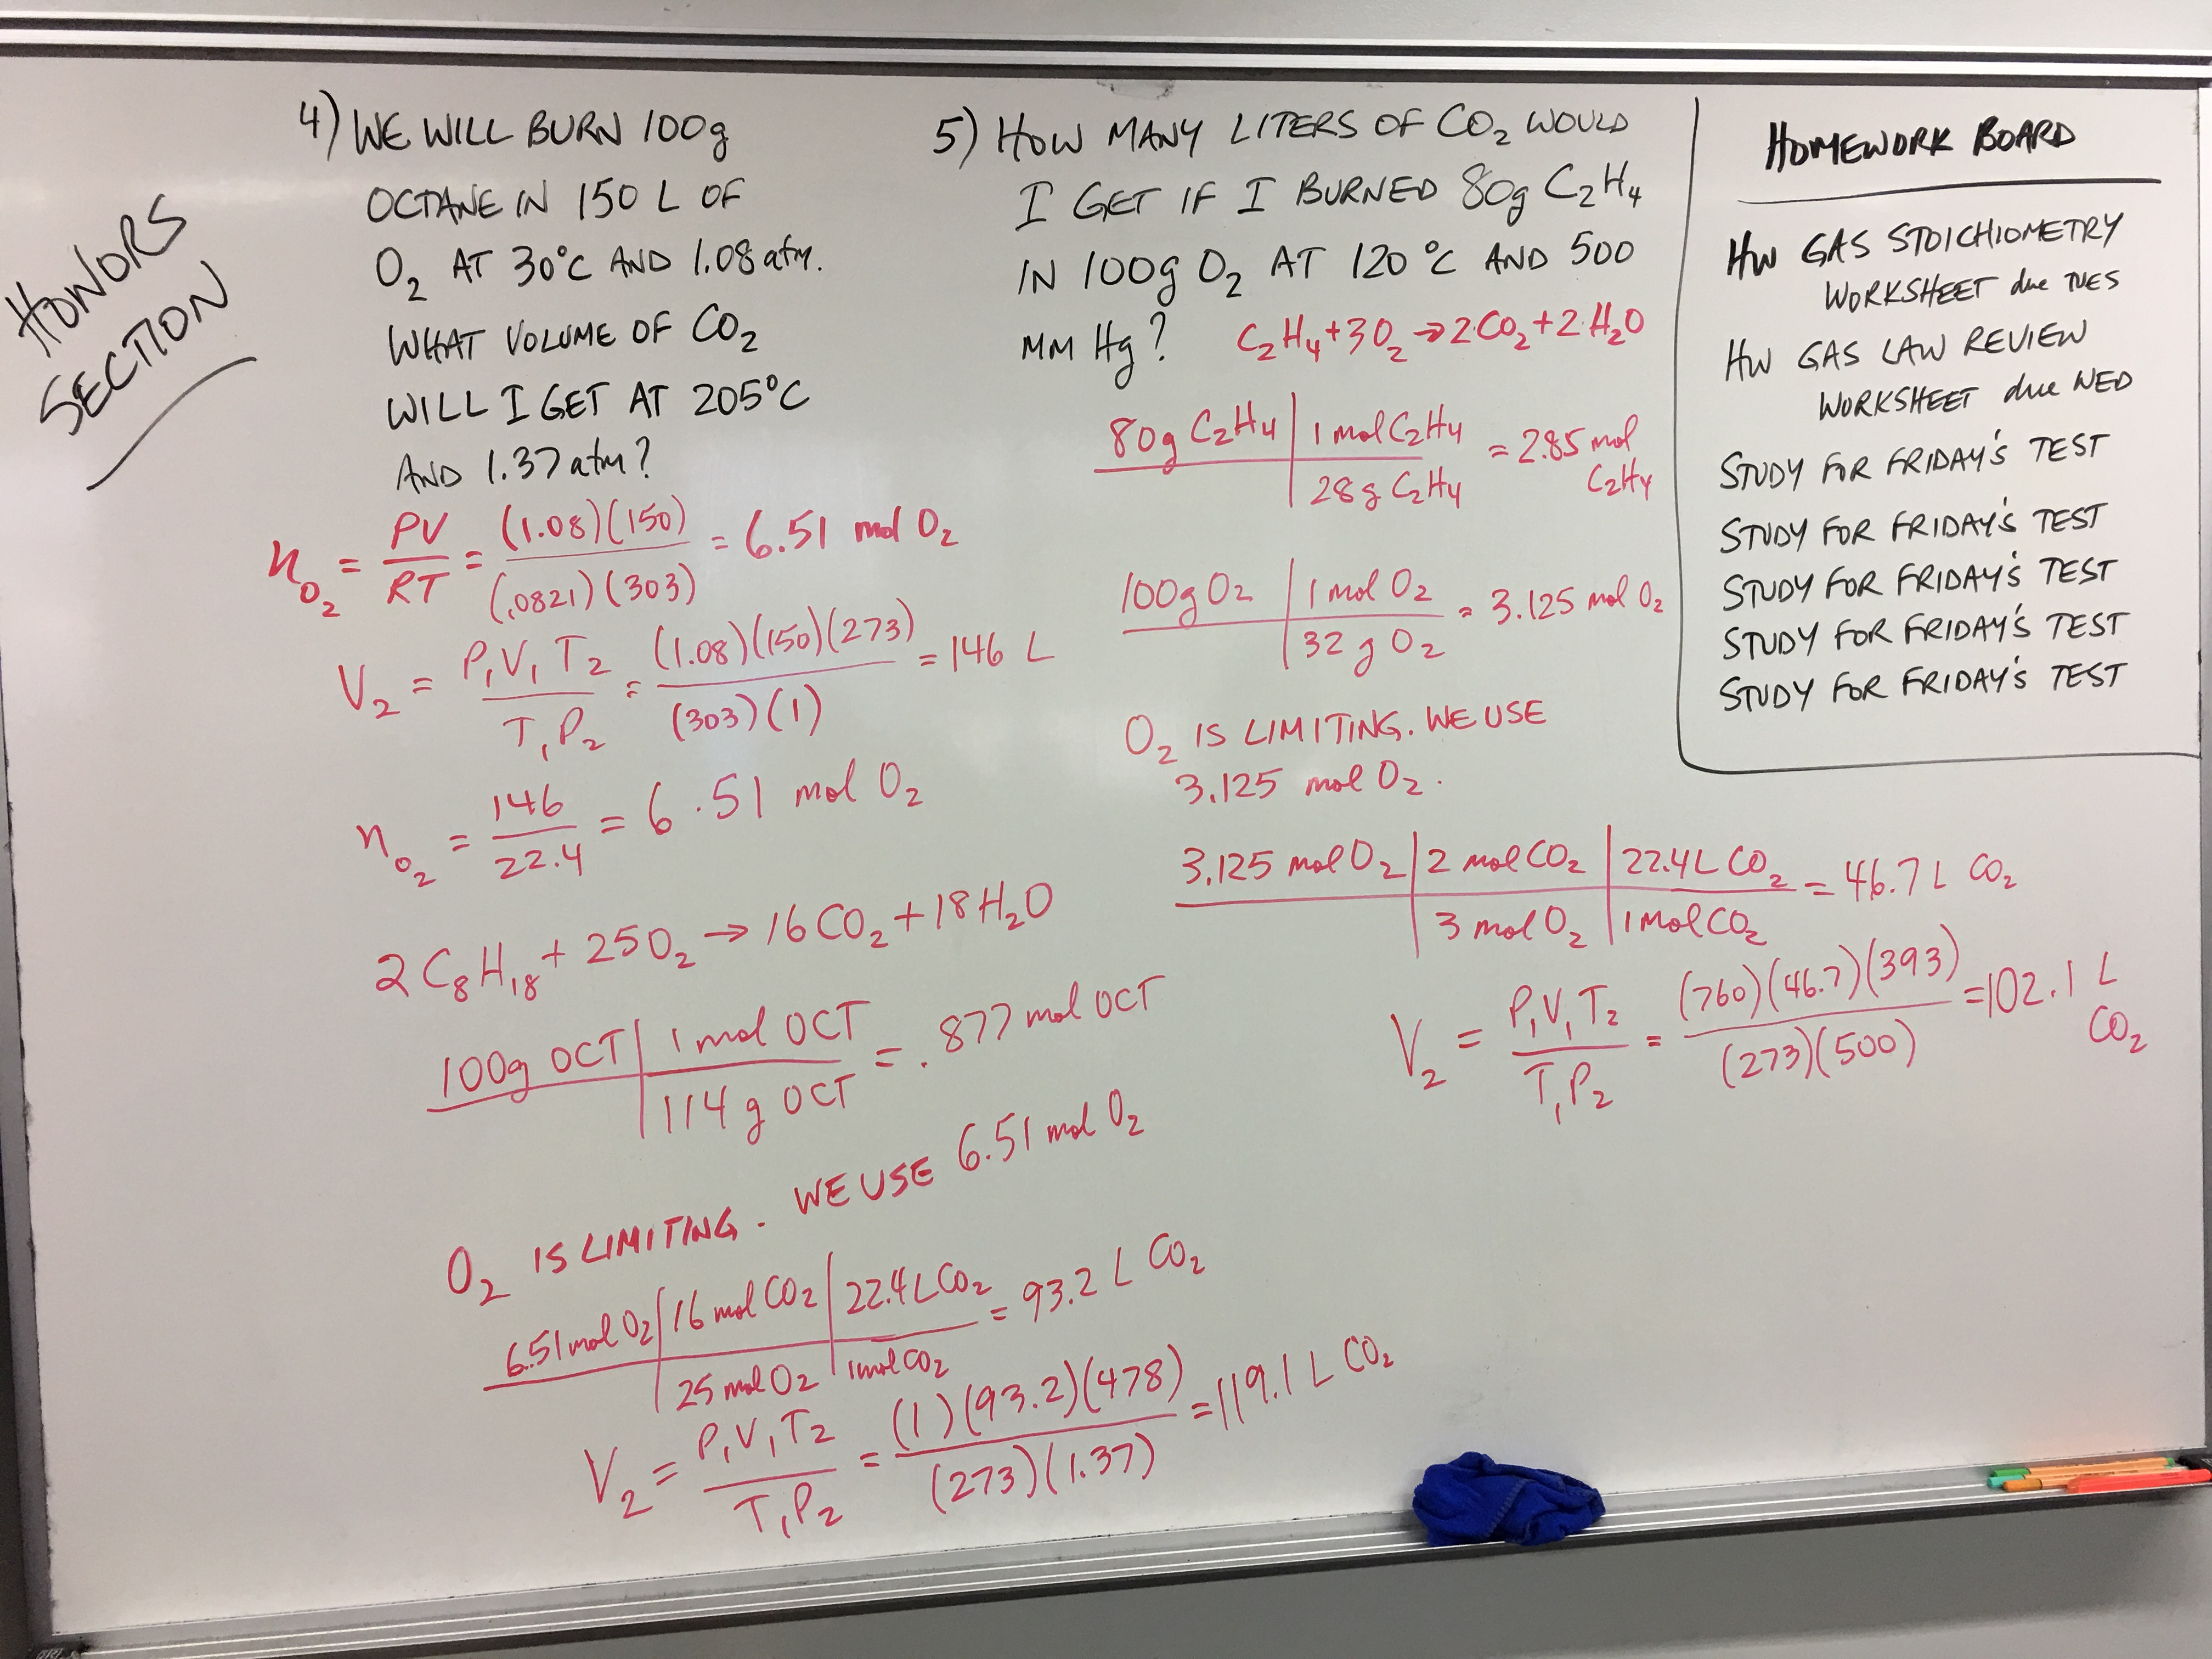 HONORS
SECTION
4) WE WILL BURN 100g
OCTANE IN 150 L OF
O₂ AT 30°C AND 1.08 atm.
WHAT VOLUME OF CO₂
WILL I GET AT 205°C
AND 1.37 atm?
n_O₂ = PV/RT = (1.08)(150)/(.0821)(303) = 6.51 mol O₂
V₂ = P₁V₁T₂/T₁P₂ = (1.08)(150)(273)/(303)(1) = 146 L
n_O₂ = 146/22.4 = 6.51 mol O₂
2C₈H₁₈ + 25O₂ → 16CO₂ + 18H₂O
100g OCT | 1 mol OCT / 114 g OCT = .877 mol OCT
O₂ IS LIMITING. WE USE 6.51 mol O₂
6.51 mol O₂ | 16 mol CO₂ / 25 mol O₂ | 22.4 L CO₂ / 1 mol CO₂ = 93.2 L CO₂
V₂ = P₁V₁T₂/T₁P₂ = (1)(93.2)(478)/(273)(1.37) = 119.1 L CO₂
5) HOW MANY LITERS OF CO₂ WOULD
I GET IF I BURNED 80g C₂H₄
IN 100g O₂ AT 120°C AND 500
MM Hg? C₂H₄ + 3O₂ → 2CO₂ + 2H₂O
80g C₂H₄ | 1 mol C₂H₄ / 28g C₂H₄ = 2.85 mol C₂H₄
100g O₂ | 1 mol O₂ / 32 g O₂ = 3.125 mol O₂
O₂ IS LIMITING. WE USE
3.125 mol O₂.
3.125 mol O₂ | 2 mol CO₂ / 3 mol O₂ | 22.4L CO₂ / 1 mol CO₂ = 46.7 L CO₂
V₂ = P₁V₁T₂/T₁P₂ = (760)(46.7)(393)/(273)(500) = 102.1 L CO₂
HOMEWORK BOARD
HW GAS STOICHIOMETRY
WORKSHEET due TUES
HW GAS LAW REVIEW
WORKSHEET due WED
STUDY FOR FRIDAY'S TEST
STUDY FOR FRIDAY'S TEST
STUDY FOR FRIDAY'S TEST
STUDY FOR FRIDAY'S TEST
STUDY FOR FRIDAY'S TEST